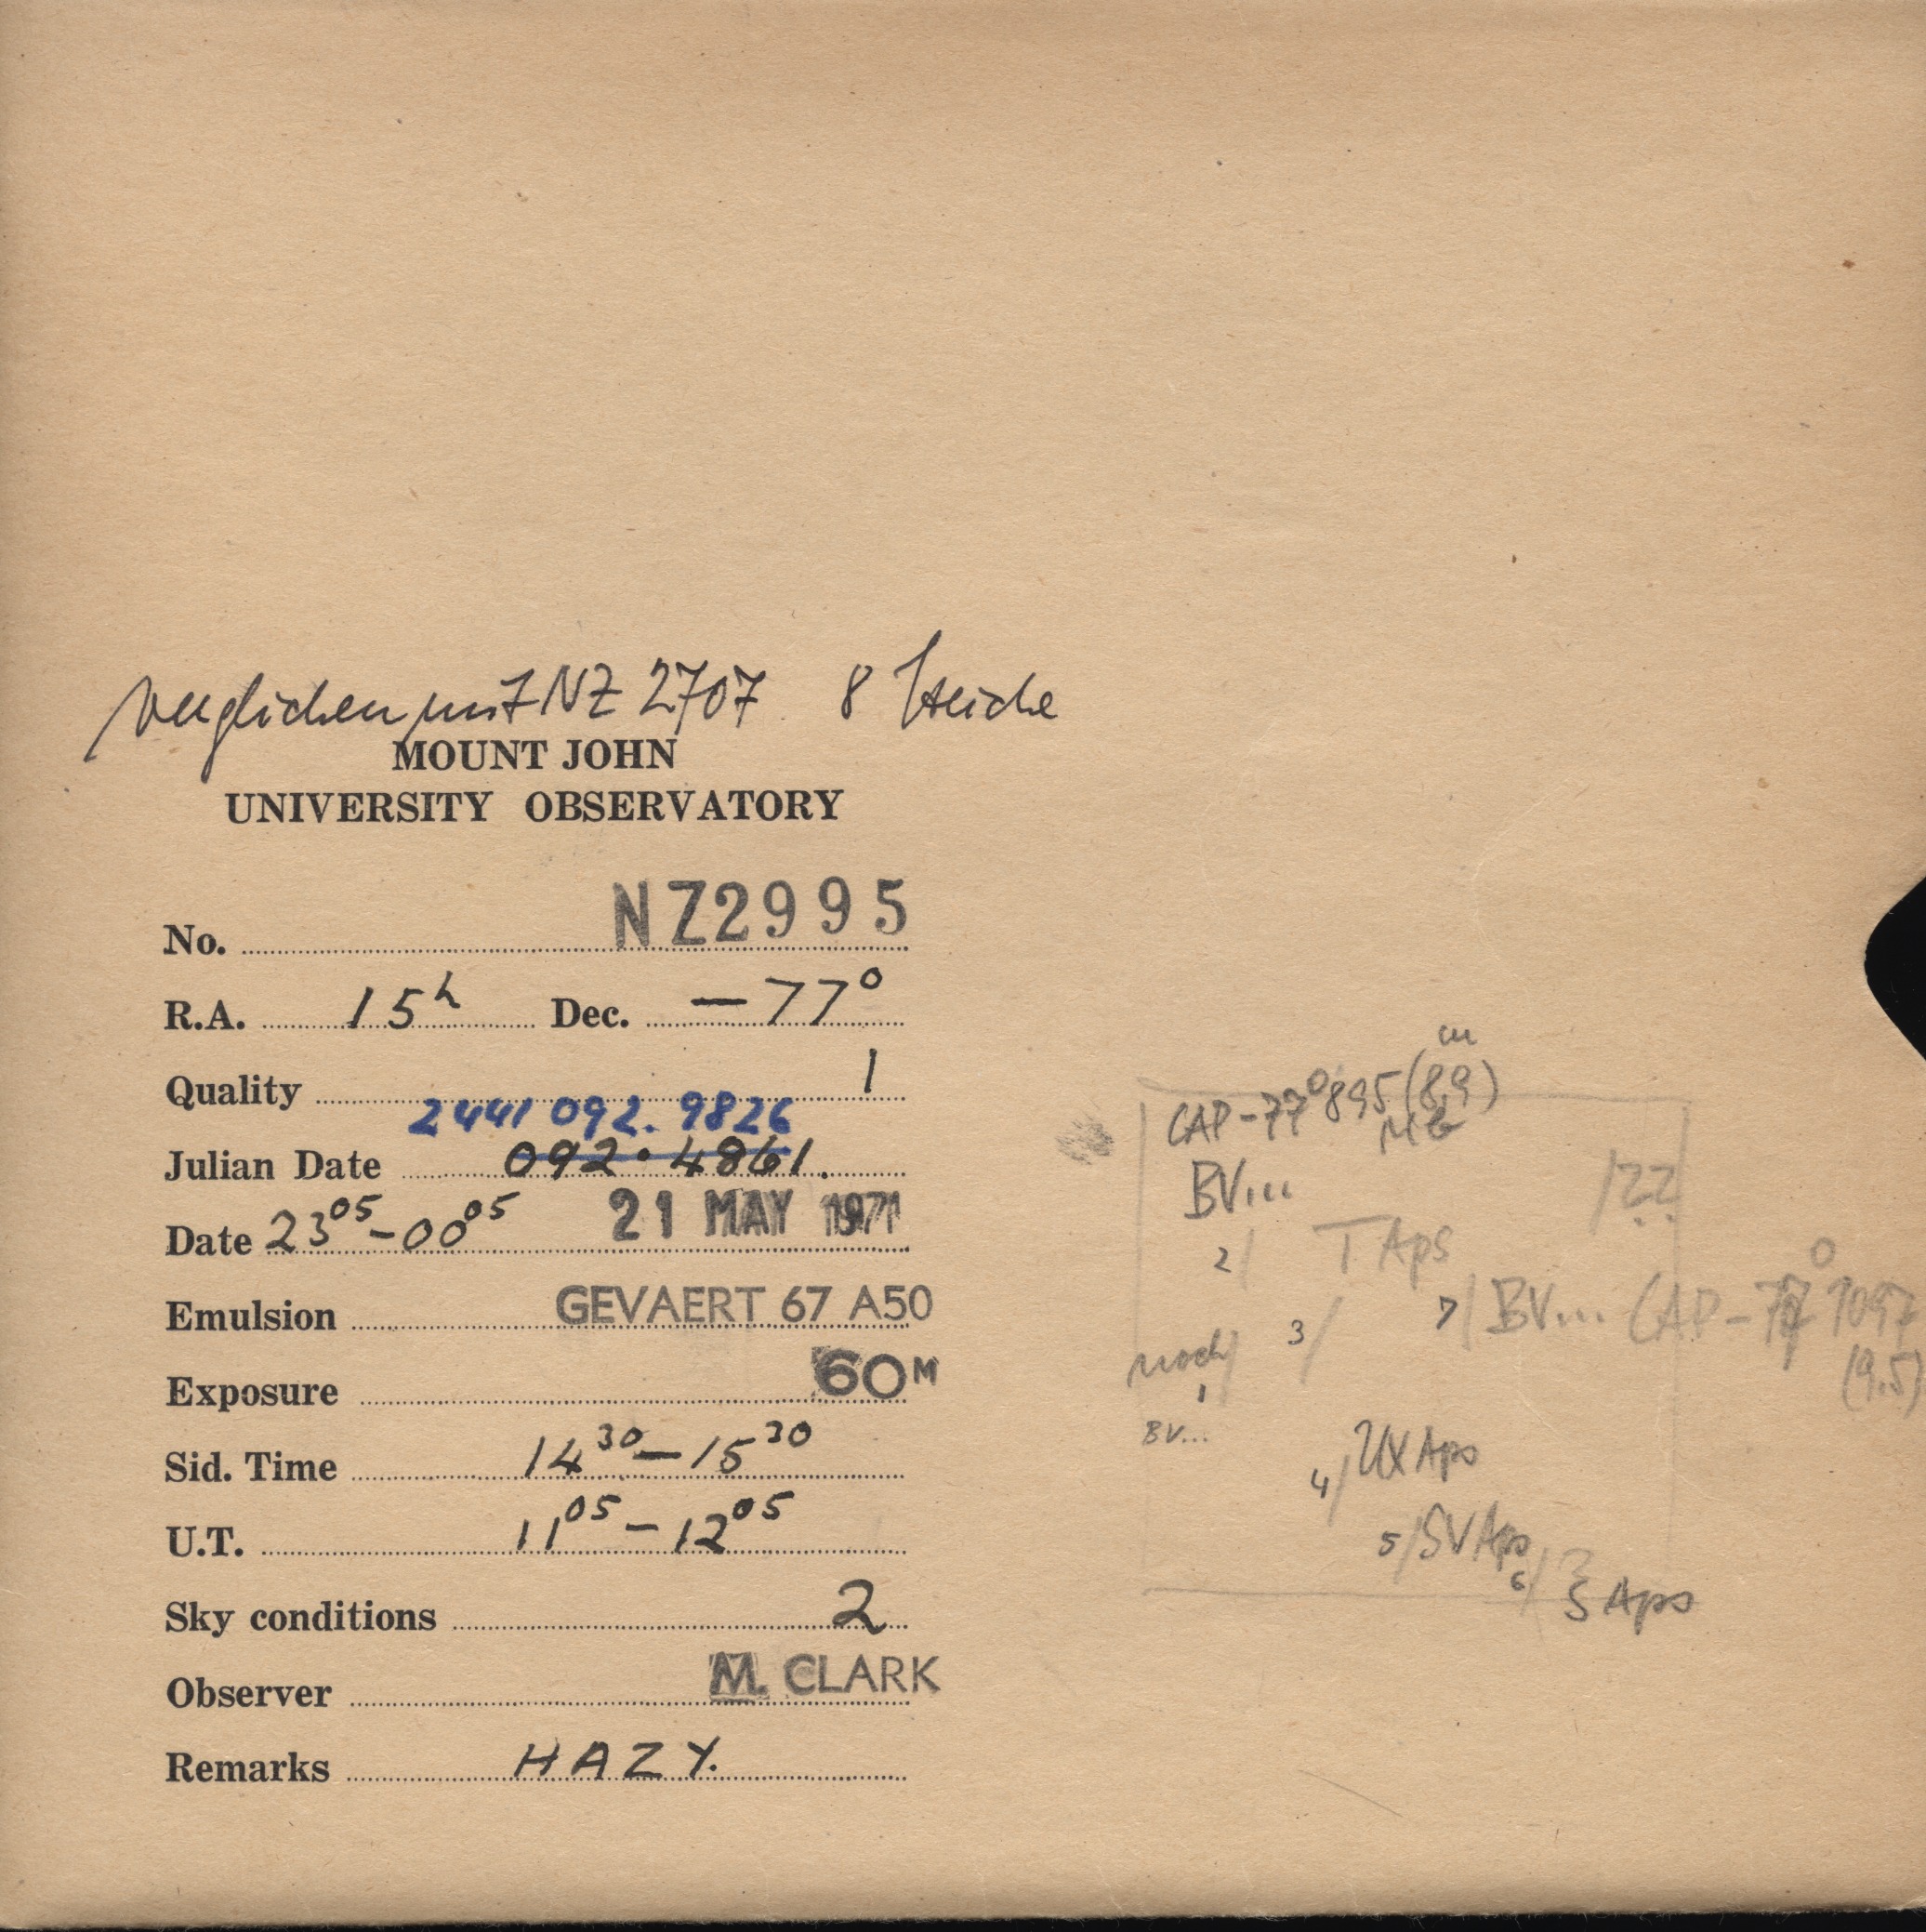 verglichen mit NZ 2707 8 Striche
MOUNT JOHN
UNIVERSITY OBSERVATORY
No. NZ2995
R.A. 15h Dec. –77°
Quality 1
2441 092. 9826
Julian Date 092.4861.
Date 23 05 – 00 05 21 MAY 1971
Emulsion GEVAERT 67 A50
Exposure 60M
Sid. Time 14 30 – 15 30
U.T. 11 05 – 12 05
Sky conditions 2
Observer M. CLARK
Remarks HAZY.
m
CAP –77° 895 (8,9)
BV...
/??
2/ T Aps
3/ 7/ BV... CAP –77° 1097
noch/ (9.5)
1
BV...
4/ UX Aps
5/ SV Aps
6/ S Aps